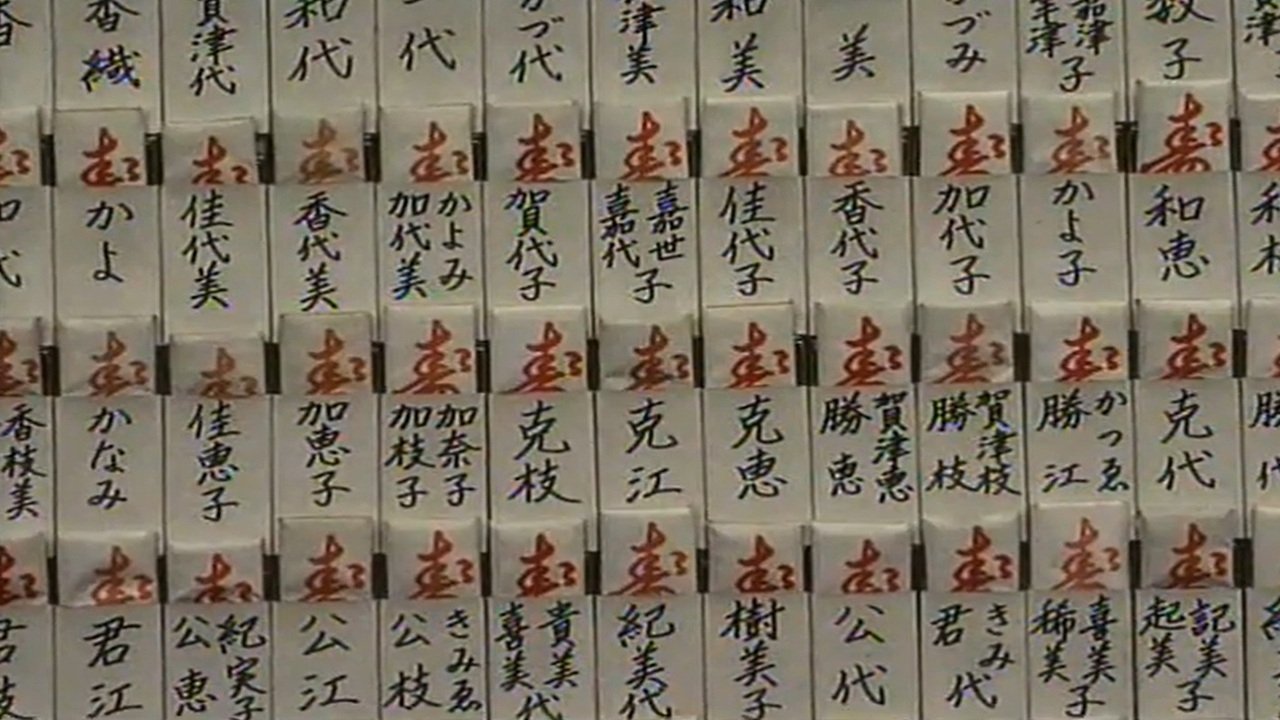 香織
賀津代
和代
代
かづ代
津美
和美
美
づみ
嘉津子
子
寿
かよ
佳代美
香代美
加代美
かよみ
賀代子
嘉代子
嘉世子
佳代子
香代子
加代子
かよ子
和恵
寿
香枝美
かなみ
佳恵子
加恵子
加枝子
加奈子
克枝
克江
克恵
勝恵
賀津恵
勝枝
賀津枝
勝江
かつゑ
克代
寿
君江
公恵
紀実子
公江
公枝
きみゑ
喜美代
貴美代
紀美代
樹美子
公代
君代
きみ代
稀美子
喜美子
起美子
記美子